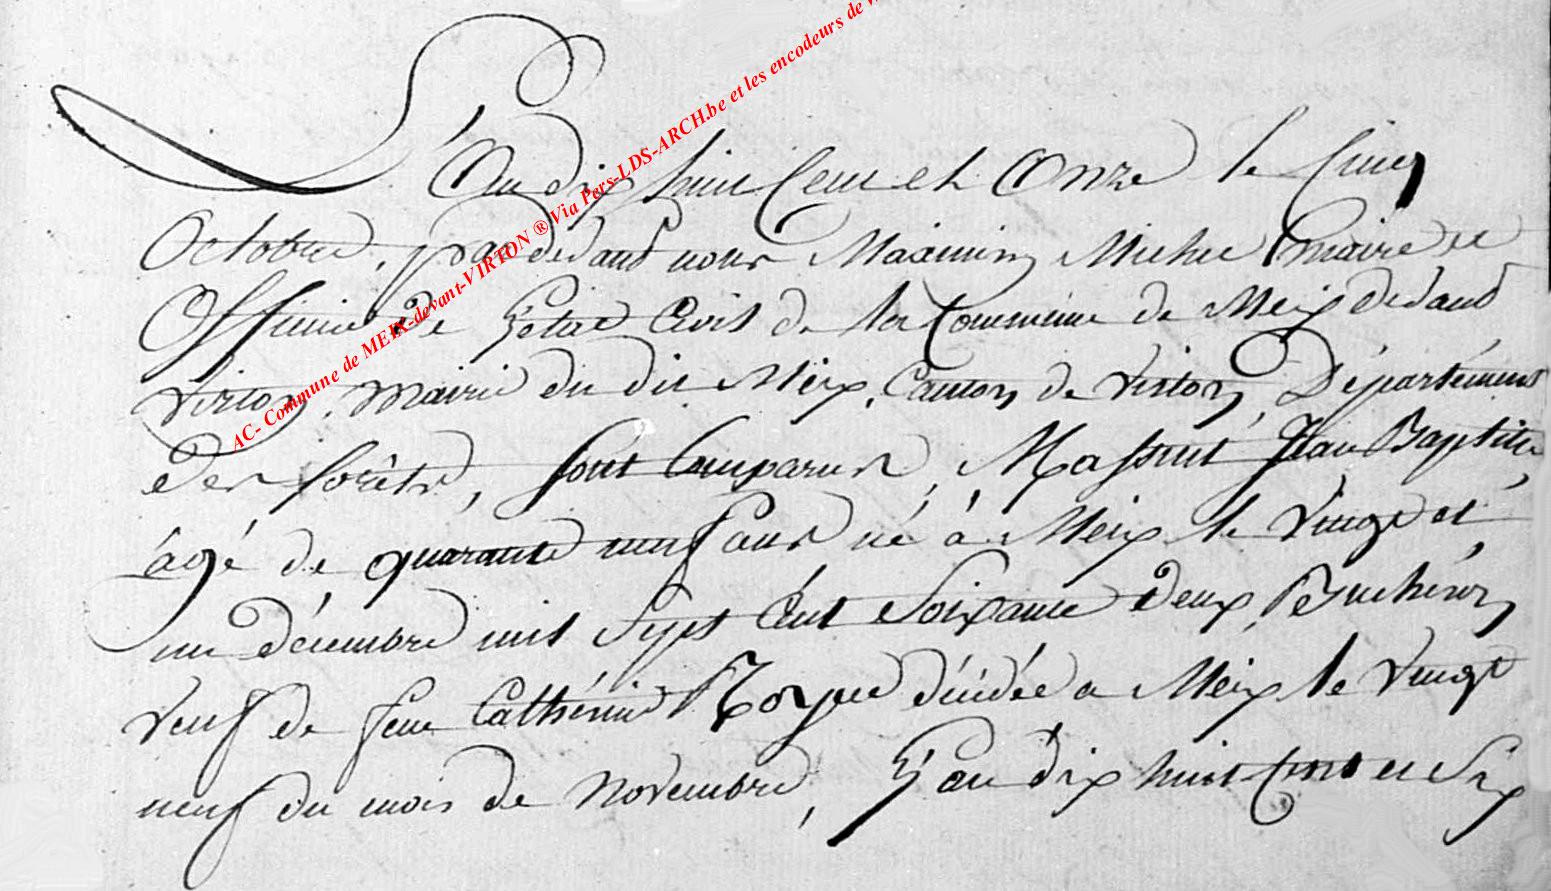 L'an dix huit cent et onze le cinq
Octobre, par devant nous Maximin Michel maire et
Officier de l'état Civil de la Commune de Meix devant
Virton, mairie du dit Meix, Canton de Virton, Département
des forêts, sont Comparus, Massut Jean Baptiste,
âgé de quarante neuf ans né à Meix le vingt et
un décembre mil Sept Cent Soixante deux, bucheron
veuf de feue Cathérine décédée a Meix le vingt
neuf du mois de novembre, l'an dix huit Cent et Six
AC- Commune de MEIX-devant-VIRTON ® Via Pers-LDS-ARCH.be et les encodeurs de